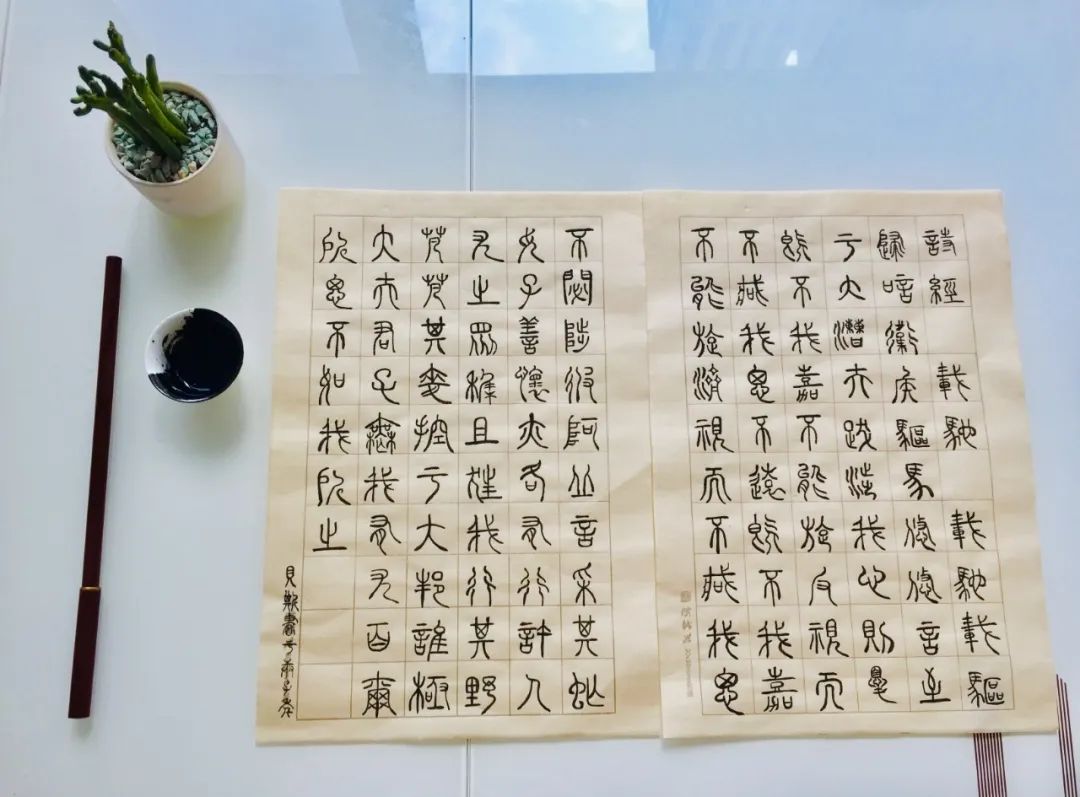 詩經 載馳 載馳載驅
歸唁衛侯驅馬悠悠言至
于大漕夫跋涉我心則憂
既不我嘉不能旋反視而
不臧我思不遠既不我嘉
不能旋濟視而不臧我思
不閟陟彼阿丘言采其蝱
女子善懷亦各有行許人
尤之眾稚且狂我行其野
芃芃其麥控于大邦誰極
大夫君子無我有尤百爾
所思不如我所之